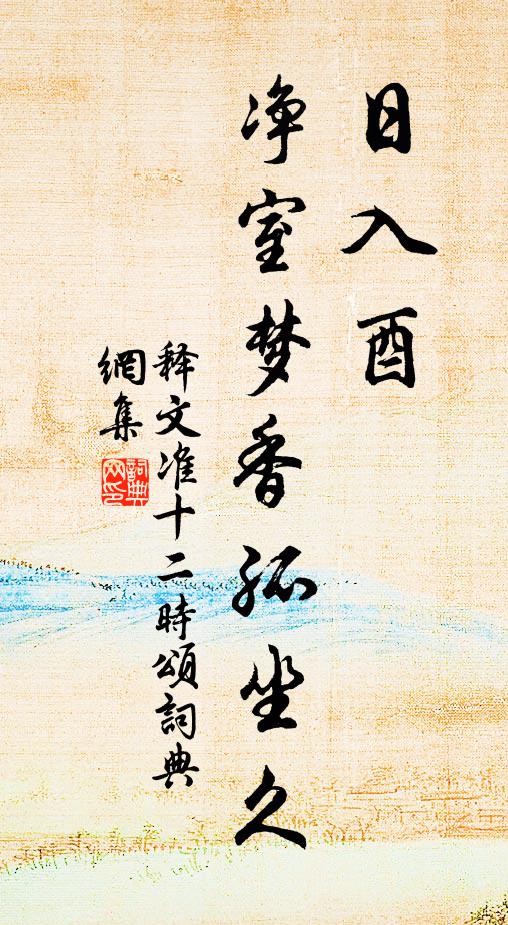 日入酉
净室梦香孤坐久
释文准十二時頌詞典
網集
詞典
网印